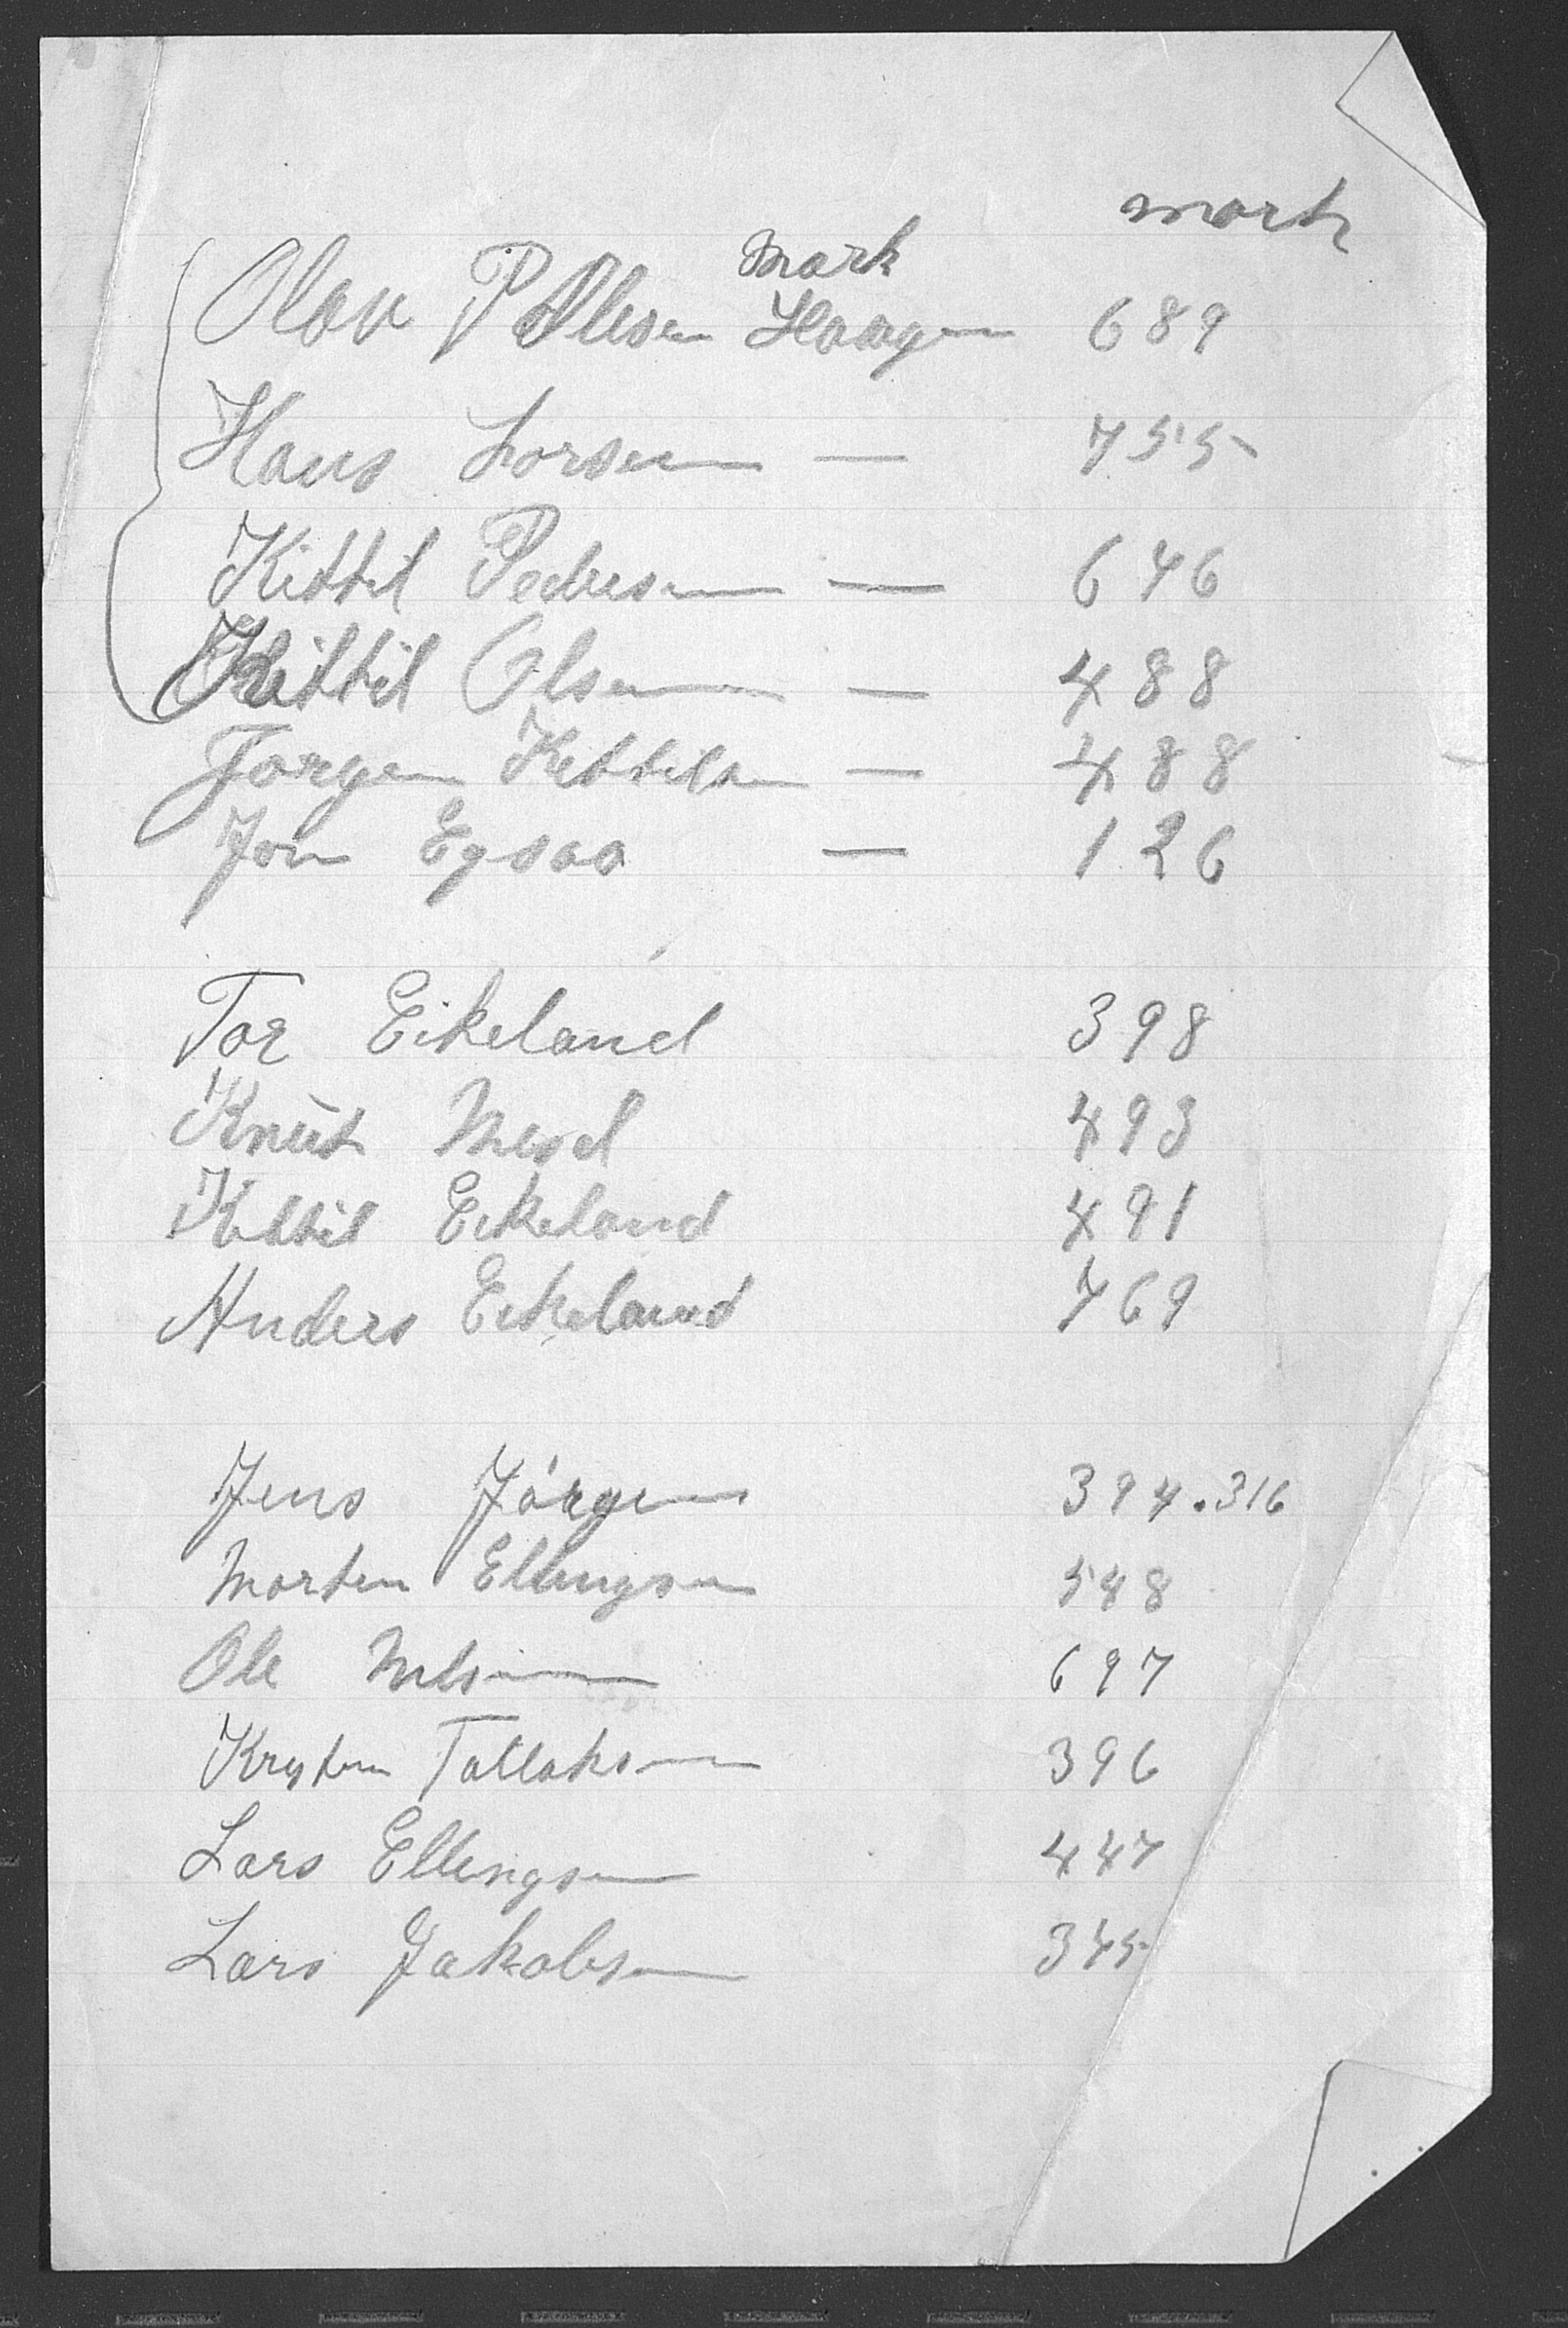 mark
mark
Olav P Olesen Haagen 689
Hans Larsen — 755
Kittil Pedersen — 646
Kittil Olsen — 488
Jørgen Kettilsen — 488
Jon Egsaa — 126
Tor Eikeland 398
Knut Mesel 493
Kettil Eikeland 491
Anders Eikeland 769
Jens Jörgen 394.316
Morten Ellingsen 548
Ole Nelsen 697
Krysten Tallaksen 396
Lars Ellingsen 447
Lars Jakobsen 345